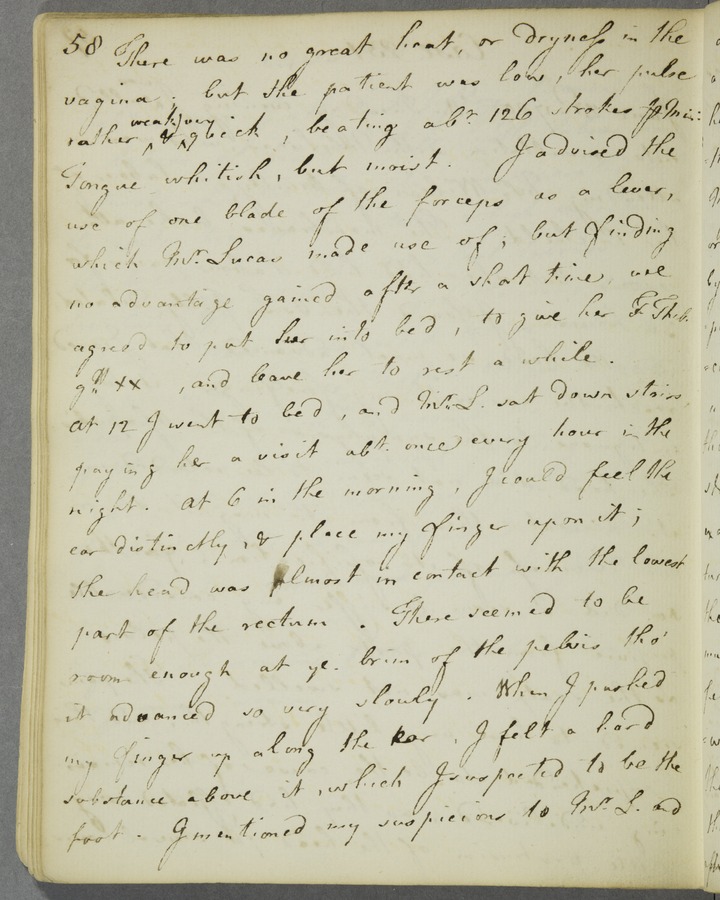 58 There was no great heat, or dryness in the
vagina; but the patient was low, her pulse
rather weak, & very quick, beating abt. 126 strokes p Min:
Tongue whitish, but moist. I advised the
use of one blade of the forceps as a lever,
which Mr. Lucas made use of; but finding
no advantage gained after a short time, we
agreed to put her into bed, to give her T. Theb.
gtt xx, and leave her to rest a while.
At 12 I went to bed, and Mr. L. sat down stairs,
paying her a visit abt. once every hour in the
night. At 6 in the morning, I could feel the
ear distinctly, & place my finger upon it;
the head was almost in contact with the lowest
part of the rectum. There seemed to be
room enough at ye. brim of the pelvis tho'
it advanced so very slowly. When I pushed
my finger up along the ear, I felt a hard
substance above it, which I suspected to be the
foot. I mentioned my suspicions to Mr. L. and